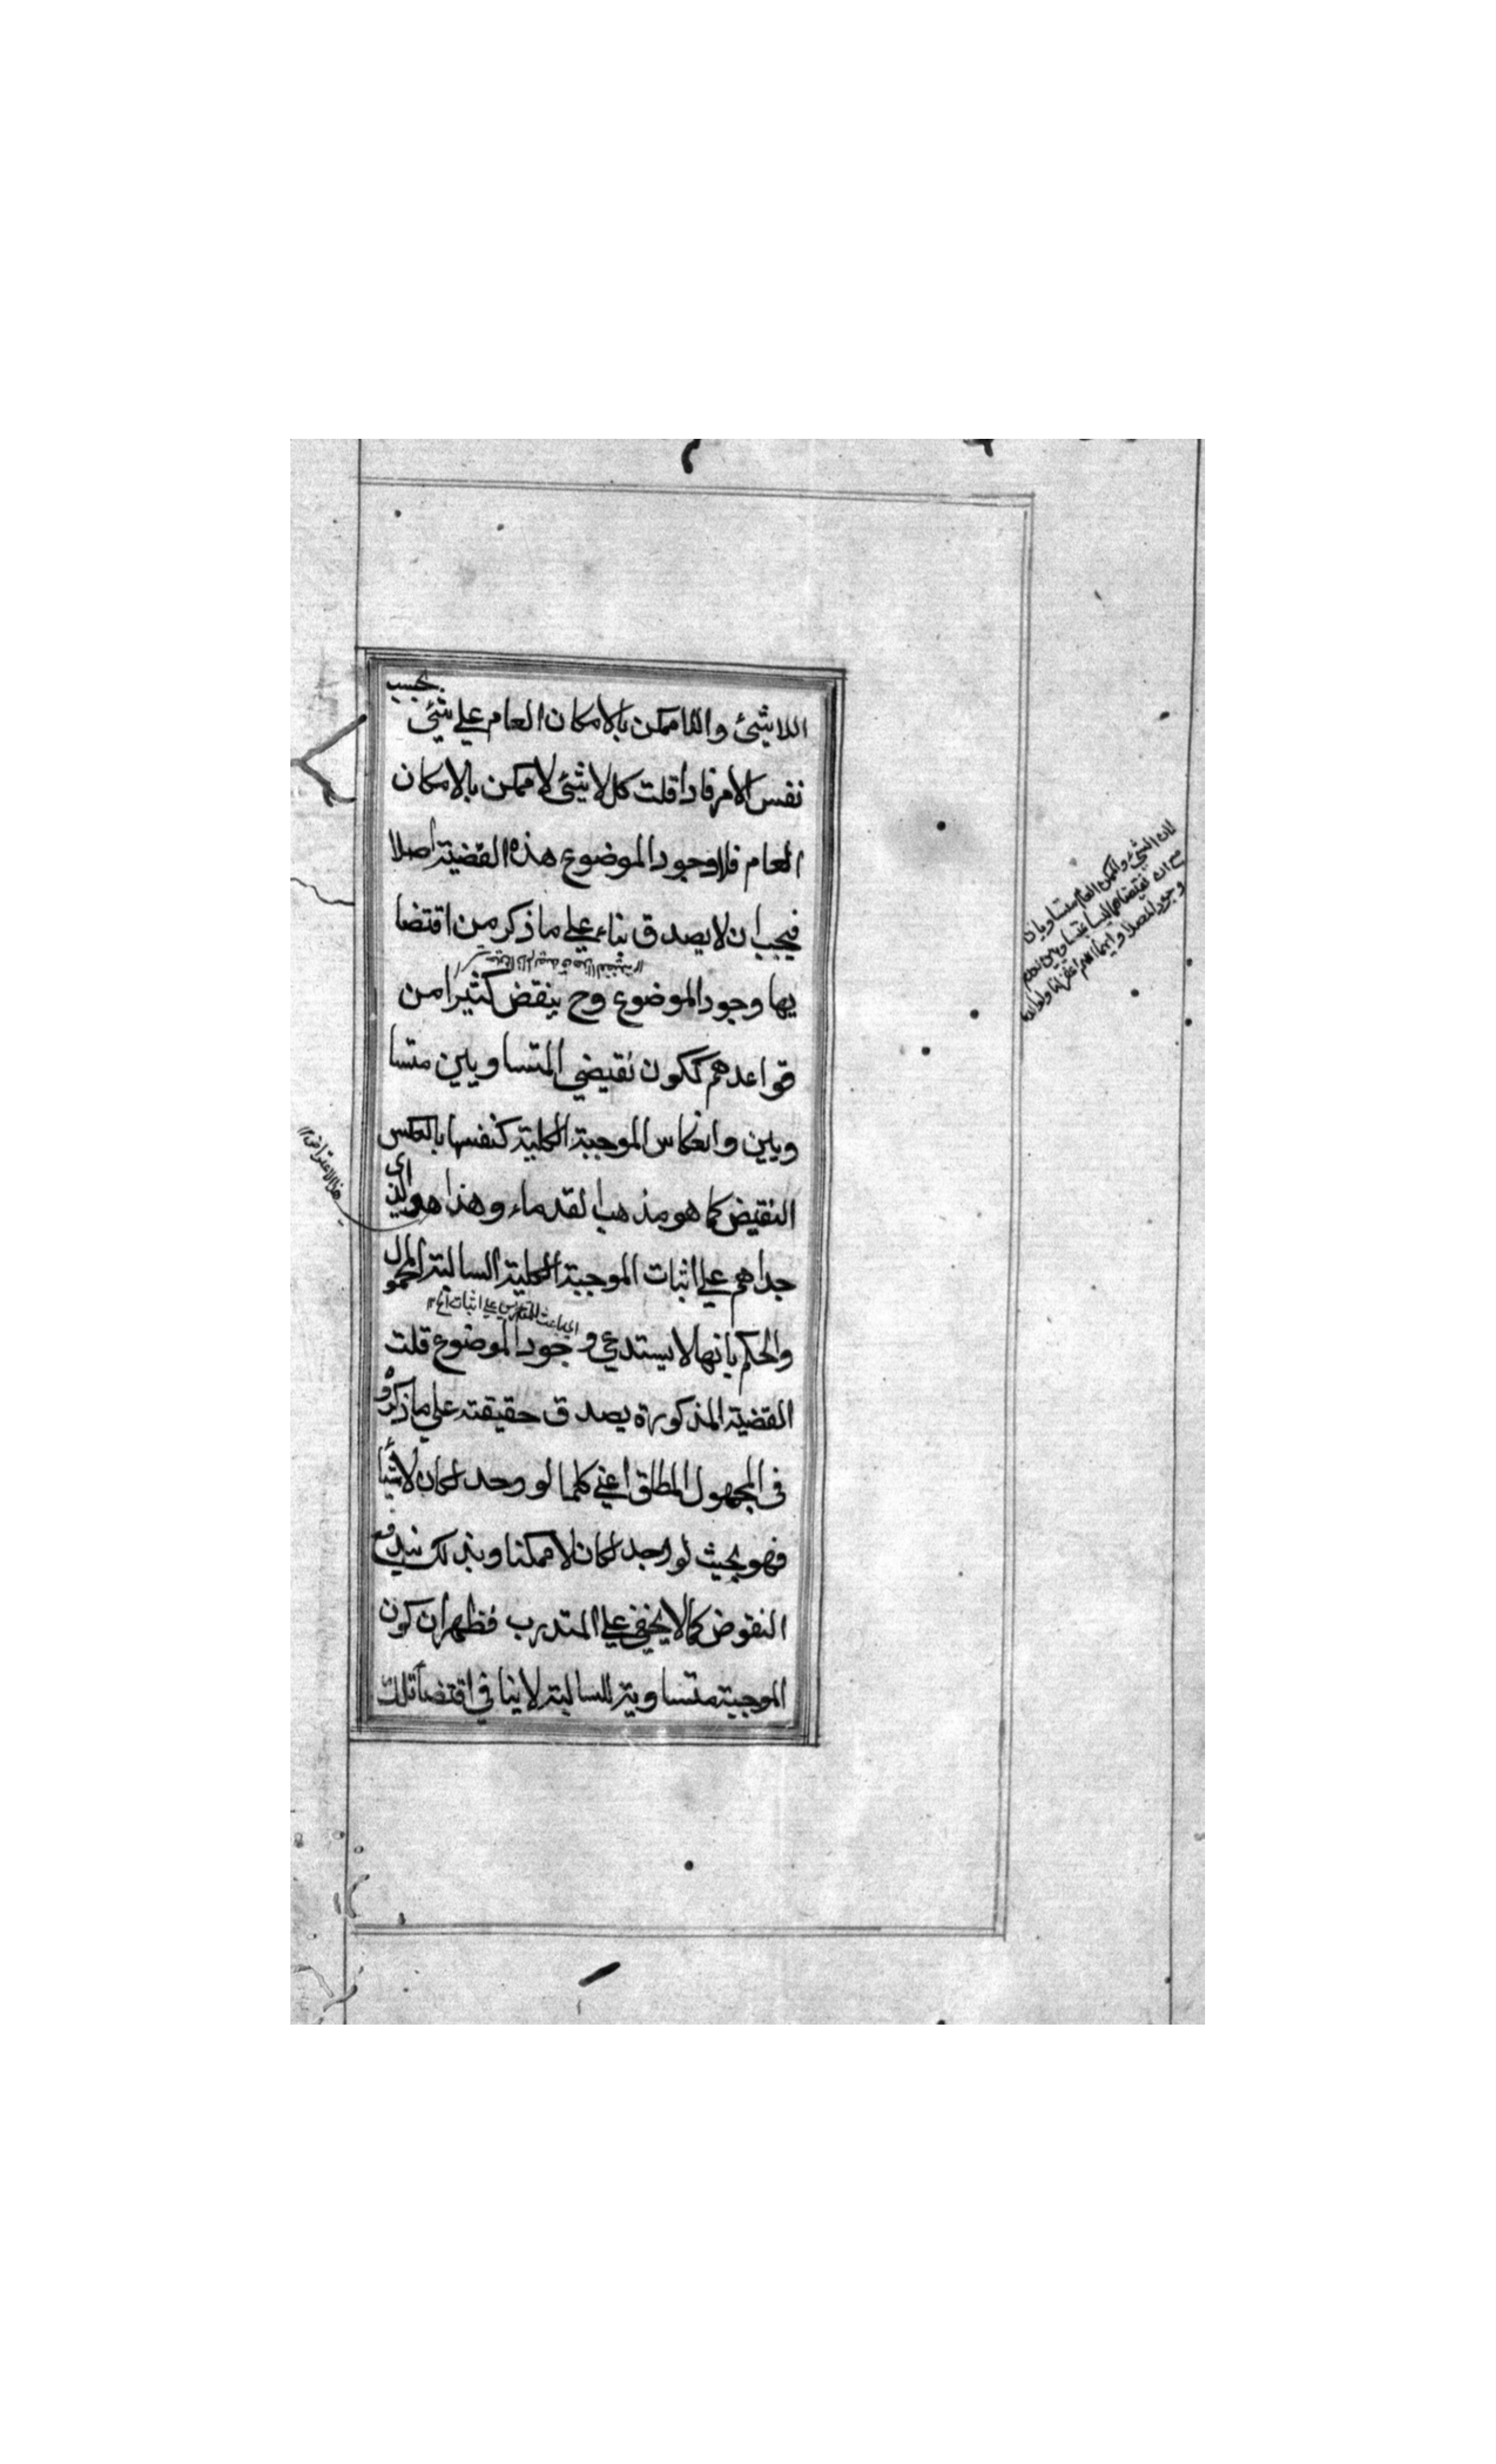 اللاشئ واللاممكن بالامكان العام علي شئي بحسب
نفس الامر فاذا قلت كل لا شئي لا ممكن بالامكان
العام فلا وجود الموضوع هذه القضية اصلا
فيجب ان لا يصدق بناء علي ما ذكر من اقتضا
يها وجود الموضوع وح ينقض كثيرا من
قواعدهم ككون نقيضي المتساويين متسا
ويين وانعكاس الموجبة الكلية كنفسها بالعكس
النقيض كما هو مذهب القدماء وهذا هو الذي
جداهم علي اثبات الموجبة الكلية السالبة المحمول
والحكم بانها لا يستدعي وجود الموضوع قلت
القضية المذكورة يصدق حقيقته علي ما ذكروه
في المجهول المطلق اعني كلما لو وجد لكان لا شيئا
فهو بحيث لو وجد لكان لا ممكنا وبذلك يندفع
النقوض كما لا يخفي علي المتدرب فظهر ان كون
الموجبة متساوية للسالبة لا ينا في اقتضا تلك
لان الشئ والممكن العام متساويان
هذا الاعتراض